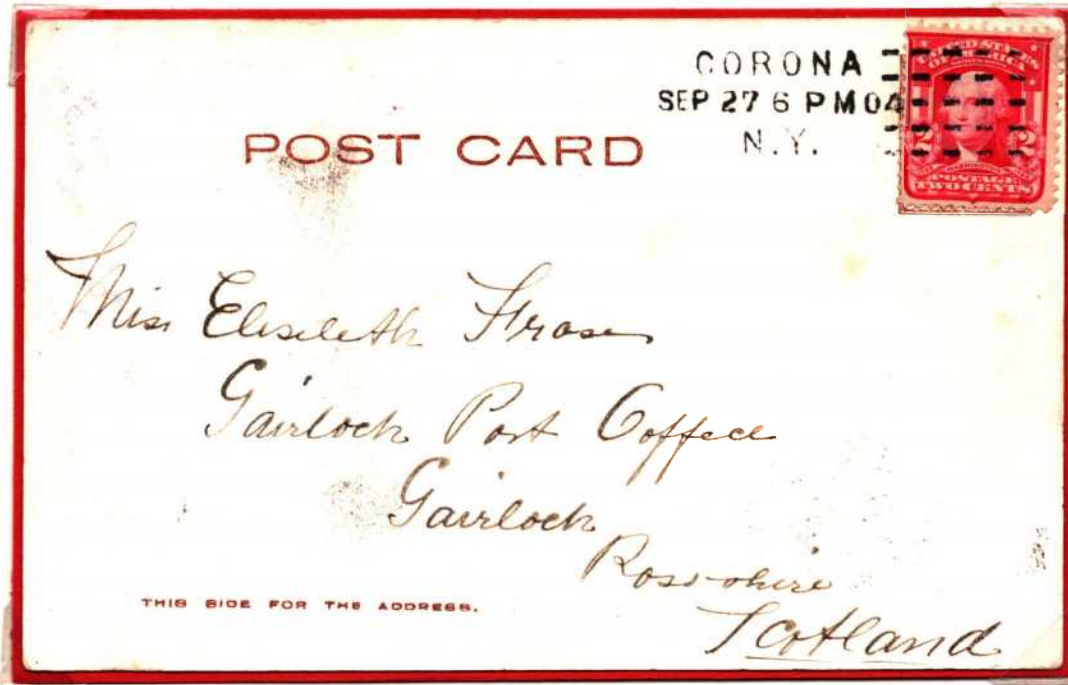 CORONA
SEP 27 6 PM 04
N.Y.
UNITED STATES
OF AMERICA
2 2
POSTAGE
TWO CENTS
POST CARD
Miss Elisebeth Fraser
Gairloch Post Office
Gairloch
Ross-shire
Scotland
THIS SIDE FOR THE ADDRESS.